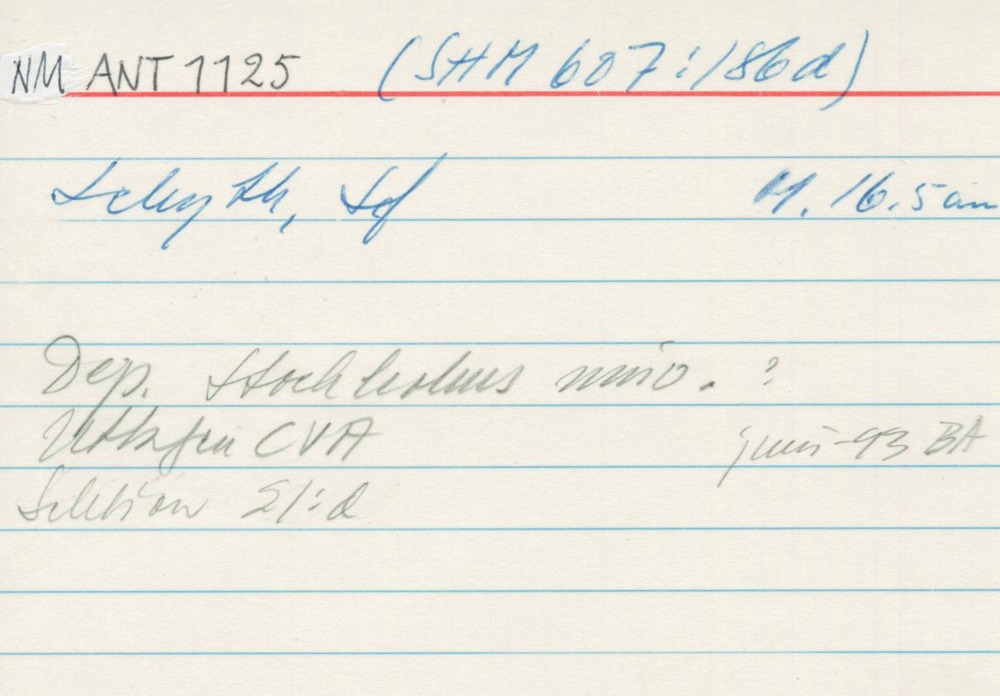 NM ANT 1125 (SHM 607:186d)
Lekyth, Sf H. 16.5 cm
Dep. Stockholms univ. ?
CVA juni -93 BA
Sektion 21:d